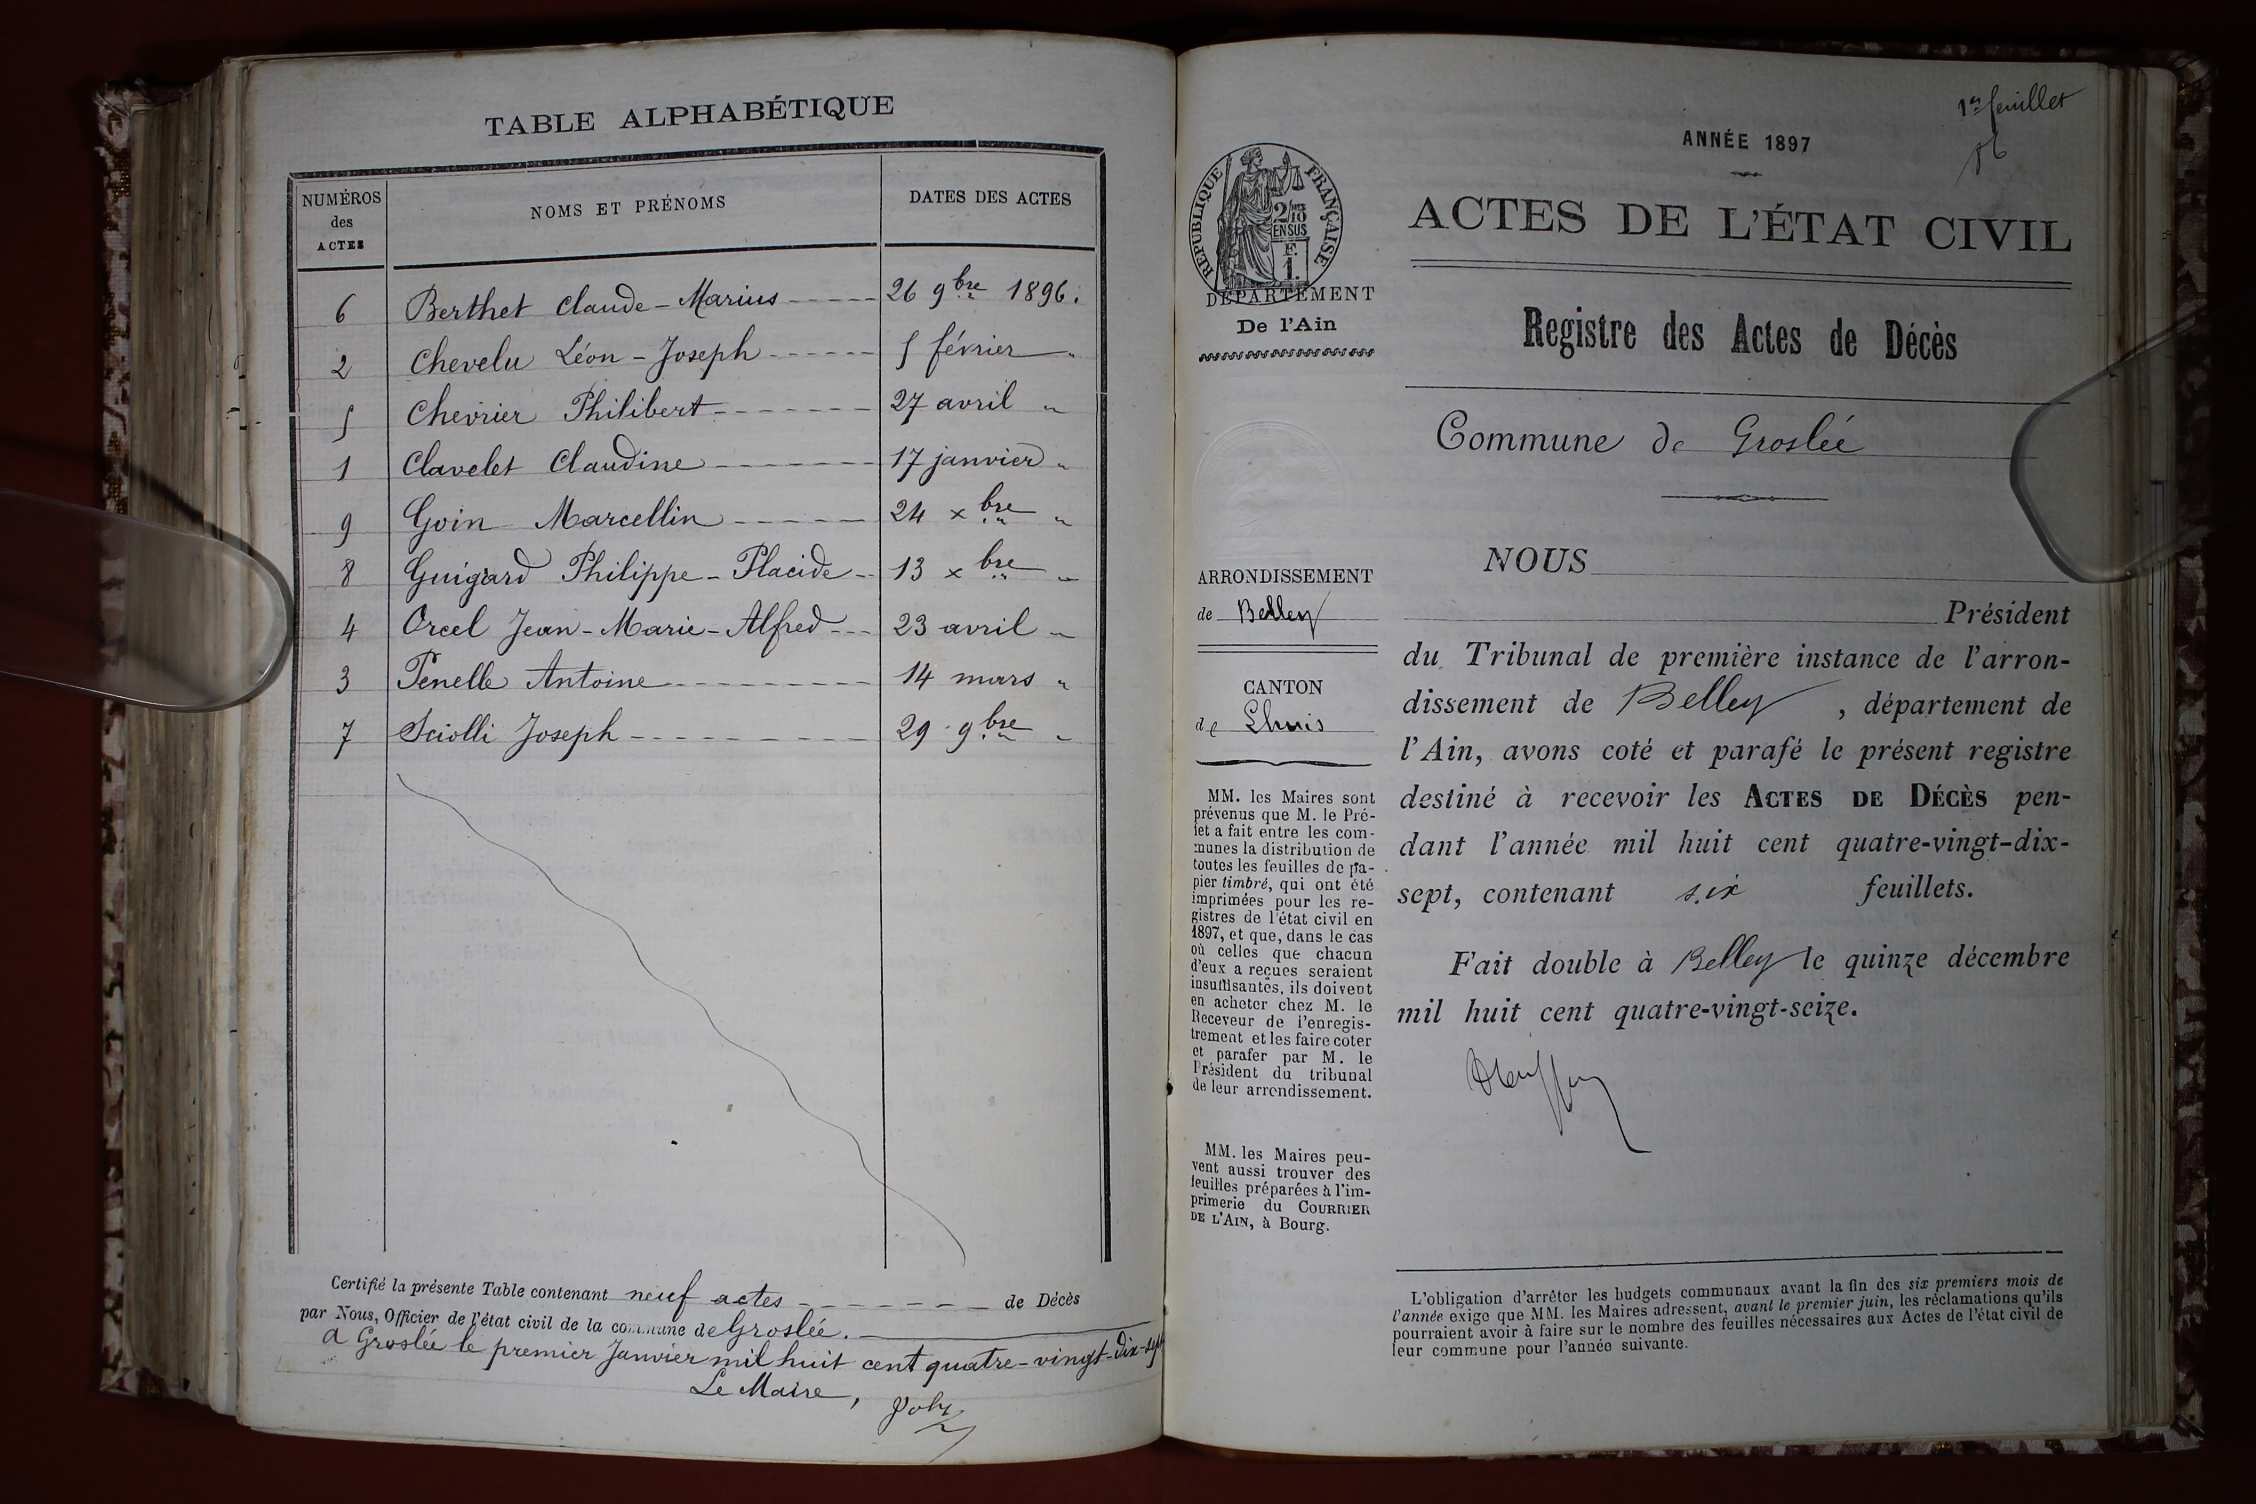 TABLE ALPHABÉTIQUE
NUMÉROS des ACTES NOMS ET PRÉNOMS DATES DES ACTES
6 Berthet Claude-Marius 26 9bre 1896.
2 Chevelu Léon-Joseph 5 février "
5 Chevrier Philibert 27 avril "
1 Clavelet Claudine 17 janvier "
9 Goin Marcellin 24 xbre "
8 Guigard Philippe-Placide 13 xbre "
4 Orcel Jean-Marie-Alfred 23 avril "
3 Penelle Antoine 14 mars "
7 Sciolli Joseph 29 9bre "
Certifié la présente Table contenant neuf actes de Décès
par Nous, Officier de l'état civil de la commune de Groslée.
A Groslée le premier Janvier mil huit cent quatre-vingt-dix-sept
Le Maire,
Poly
1er feuillet
ANNÉE 1897
RÉPUBLIQUE FRANÇAISE
2/10
EN SUS
F.
1.
DÉPARTEMENT
De l'Ain
ARRONDISSEMENT
de Belley
CANTON
de Lhuis
MM. les Maires sont
prévenus que M. le Pré-
fet a fait entre les com-
munes la distribution de
toutes les feuilles de pa-
pier timbré, qui ont été
imprimées pour les re-
gistres de l'état civil en
1897, et que, dans le cas
où celles que chacun
d'eux a reçues seraient
insuffisantes, ils doivent
en acheter chez M. le
Receveur de l'enregis-
trement et les faire coter
et parafer par M. le
Président du tribunal
de leur arrondissement.
MM. les Maires peu-
vent aussi trouver des
feuilles préparées à l'im-
primerie du COURRIER
DE L'AIN, à Bourg.
ACTES DE L'ÉTAT CIVIL
Registre des Actes de Décès
Commune de Groslée
NOUS
Président
du Tribunal de première instance de l'arron-
dissement de Belley, département de
l'Ain, avons coté et parafé le présent registre
destiné à recevoir les ACTES DE DÉCÈS pen-
dant l'année mil huit cent quatre-vingt-dix-
sept, contenant six feuillets.
Fait double à Belley le quinze décembre
mil huit cent quatre-vingt-seize.
L'obligation d'arrêter les budgets communaux avant la fin des six premiers mois de
l'année exige que MM. les Maires adressent, avant le premier juin, les réclamations qu'ils
pourraient avoir à faire sur le nombre des feuilles nécessaires aux Actes de l'état civil de
leur commune pour l'année suivante.